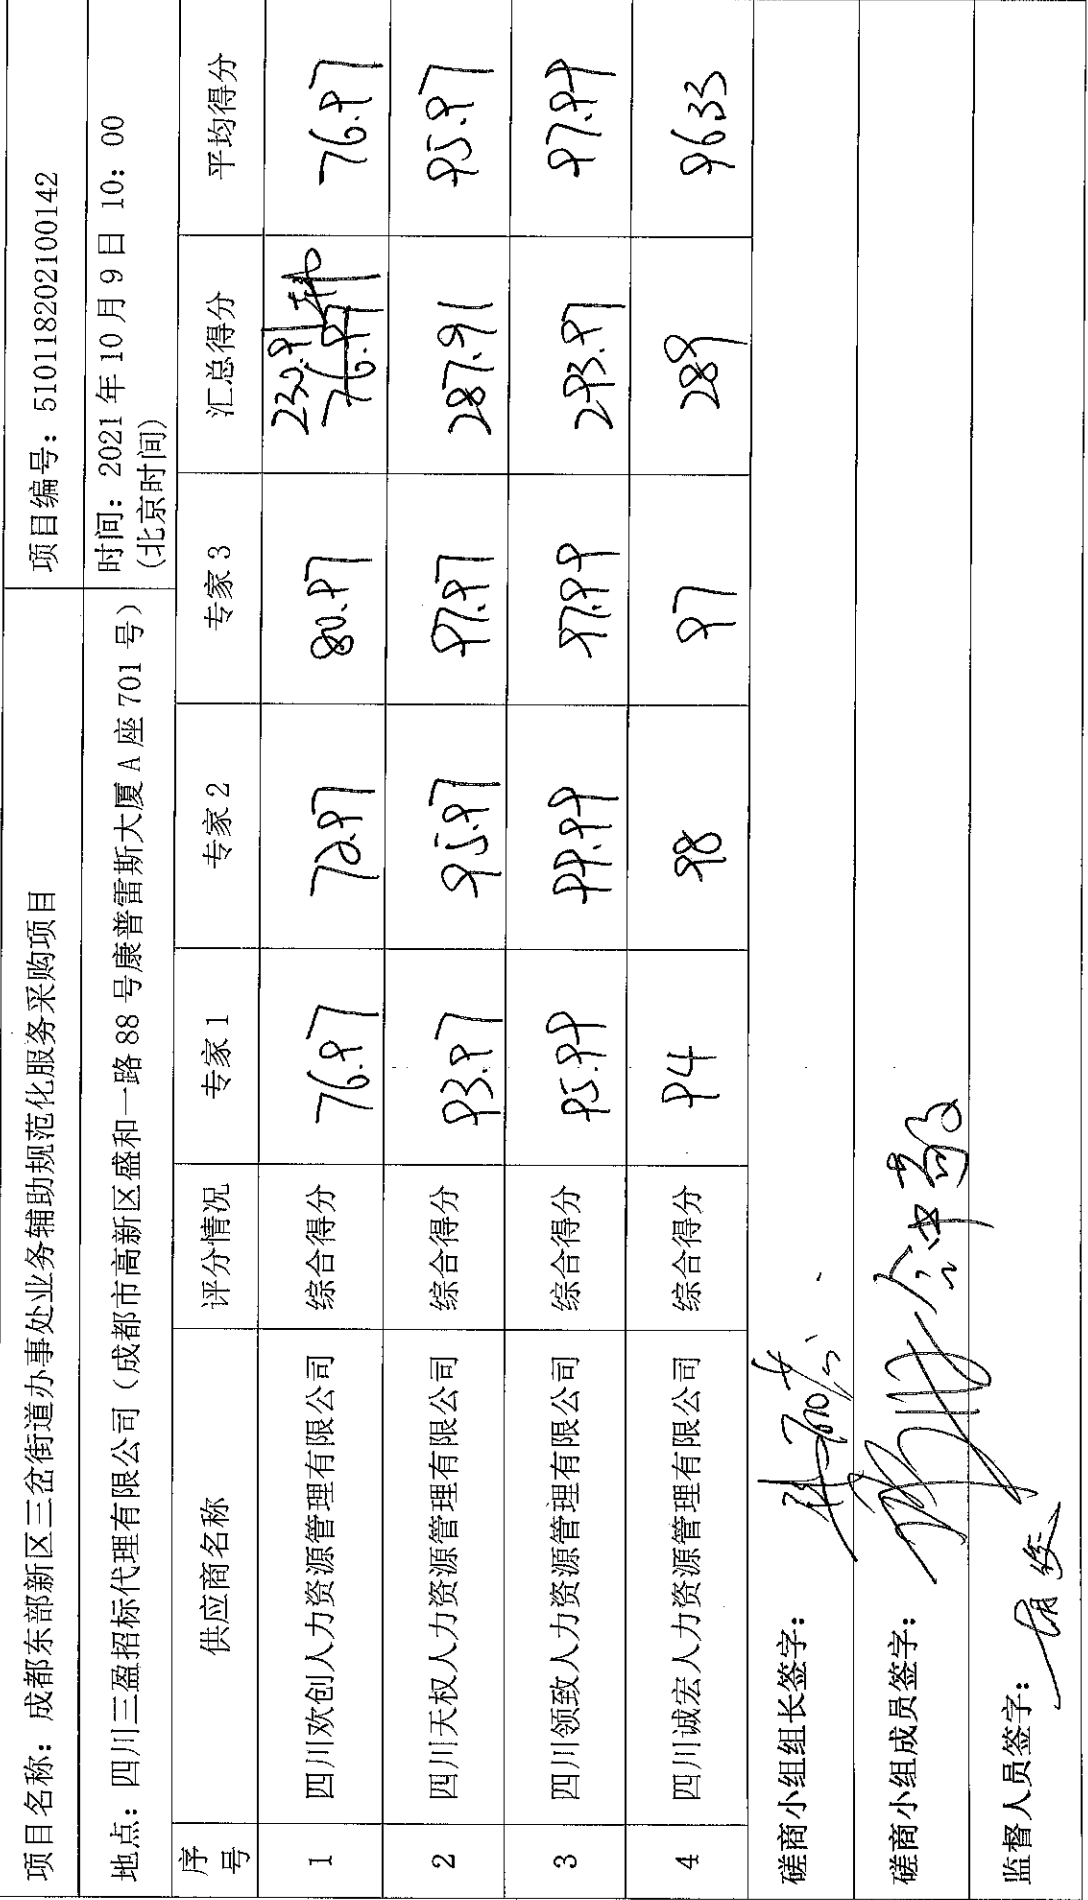 项目名称：成都东部新区三岔街道办事处业务辅助规范化服务采购项目 项目编号：510118202100142
地点：四川三盈招标代理有限公司（成都市高新区盛和一路88号康普雷斯大厦A座701号） 时间：2021年10月9日 10：00
（北京时间）
序号 供应商名称 评分情况 专家1 专家2 专家3 汇总得分 平均得分
1 四川欢创人力资源管理有限公司 综合得分 76.97 72.97 80.97 230.91 76.97 76.97
2 四川天权人力资源管理有限公司 综合得分 93.97 95.97 97.97 287.91 95.97
3 四川领致人力资源管理有限公司 综合得分 95.99 99.99 97.99 293.97 97.99
4 四川诚宏人力资源管理有限公司 综合得分 94 98 97 289 96.33
磋商小组组长签字：
磋商小组成员签字：
监督人员签字：